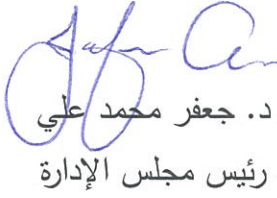 د. جعفر محمد علي
رئيس مجلس الإدارة